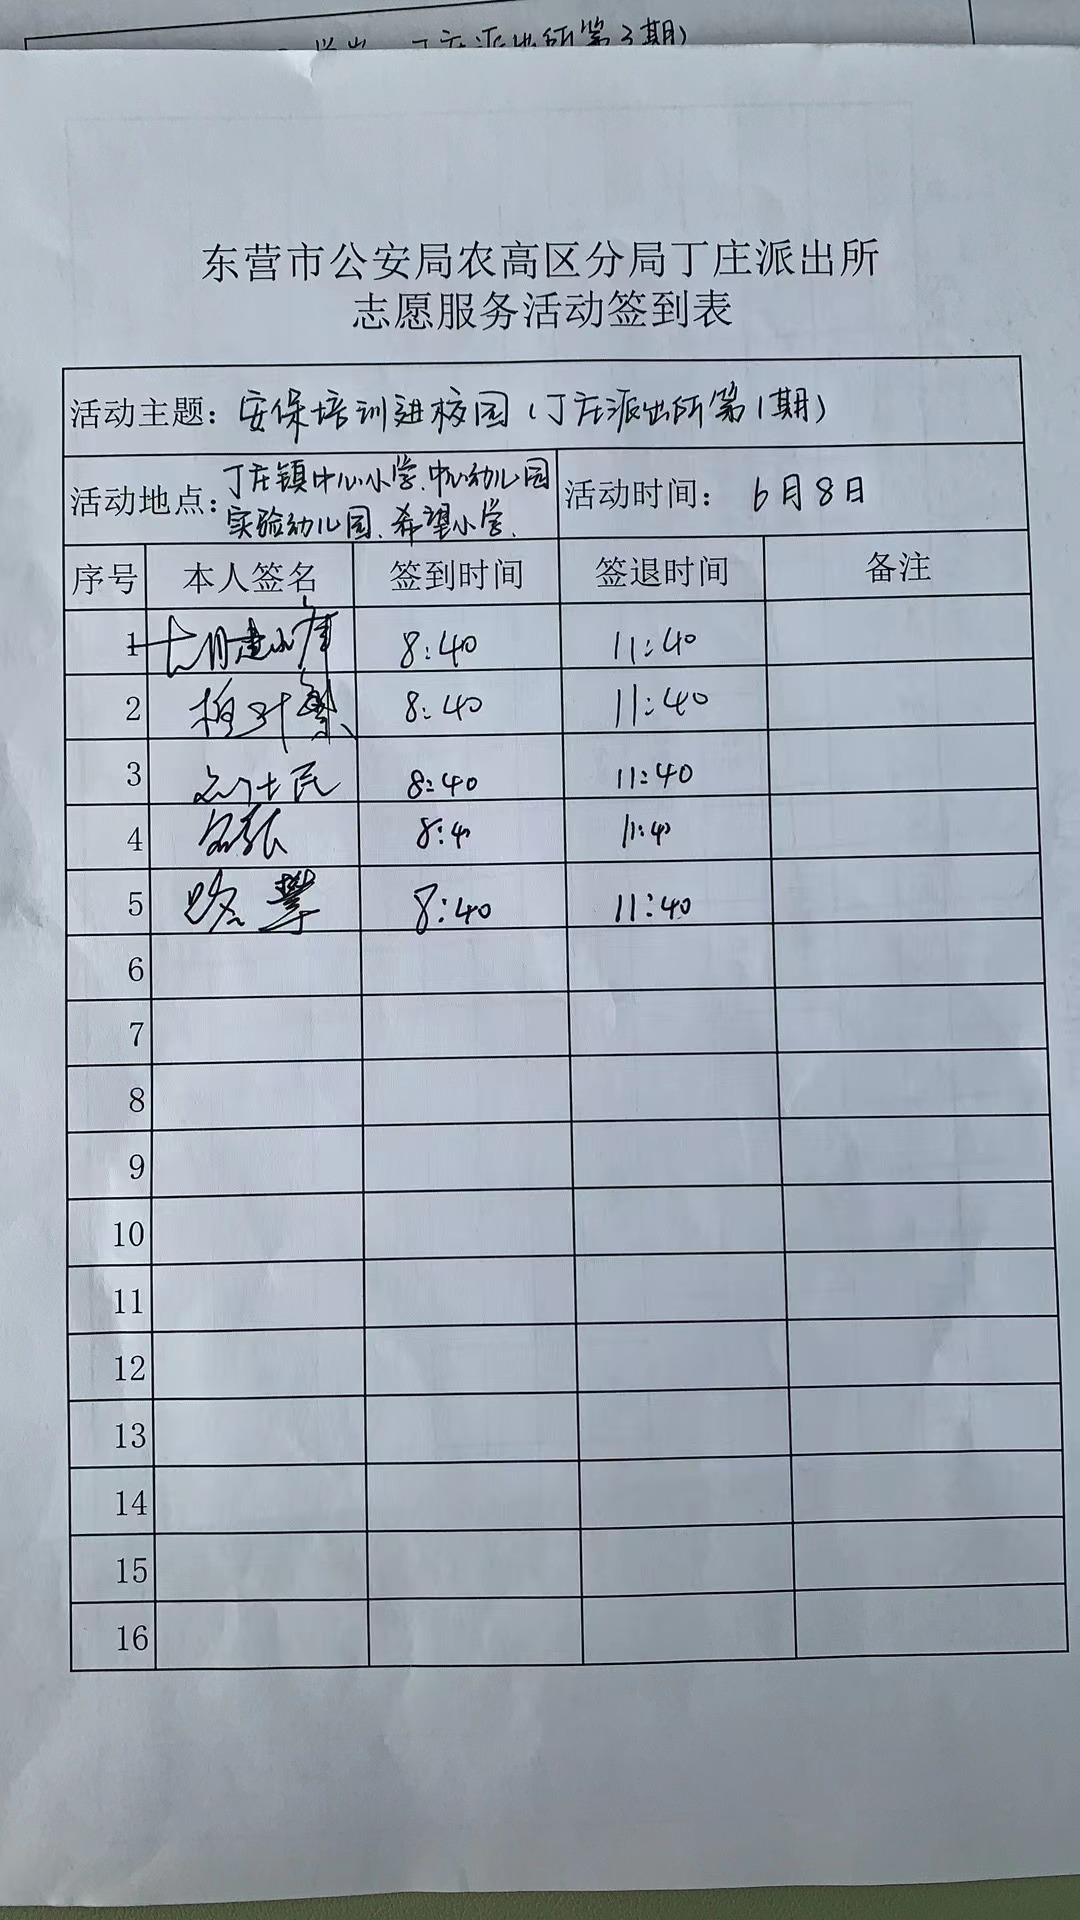 丁庄派出所第3期)
东营市公安局农高区分局丁庄派出所
志愿服务活动签到表
活动主题: 安保培训进校园(丁庄派出所第1期)
活动地点: 丁庄镇中心小学、中心幼儿园
实验幼儿园、希望小学、
活动时间: 6月8日
序号 本人签名 签到时间 签退时间 备注
1 8:40 11:40
2 8:40 11:40
3 8:40 11:40
4 8:40 11:40
5 8:40 11:40
6
7
8
9
10
11
12
13
14
15
16